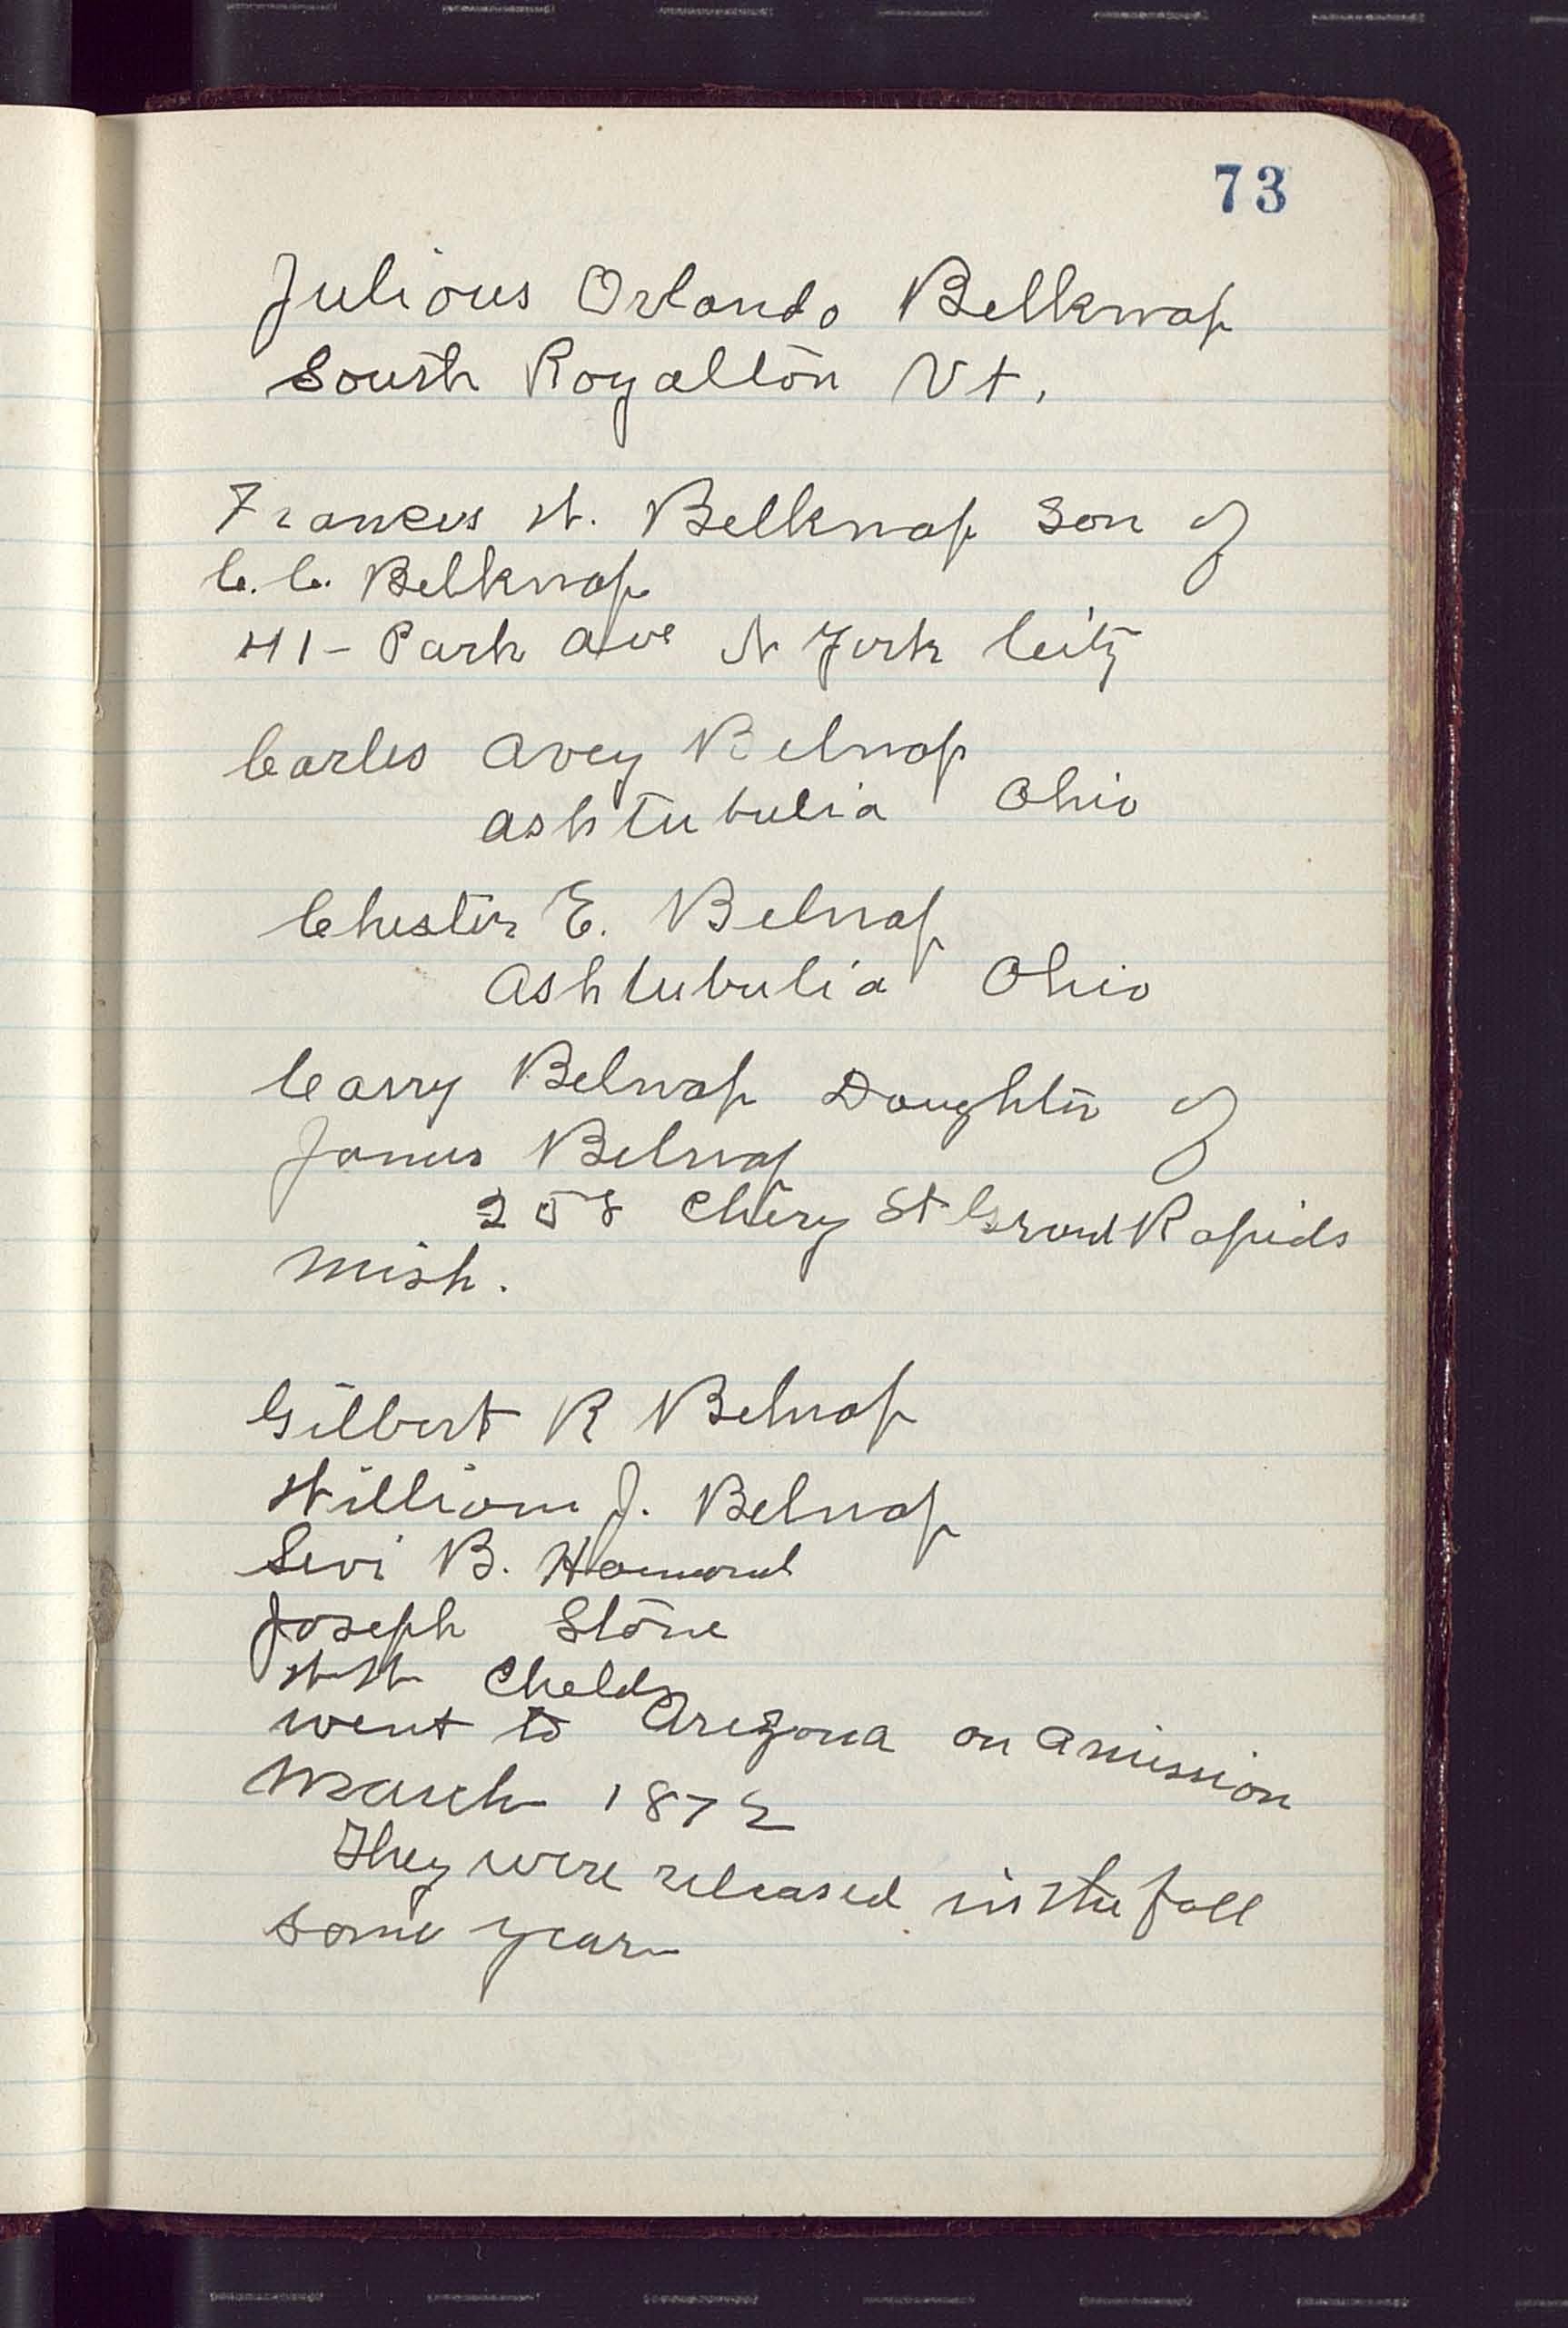 73
Julious Orlando Belknap
South Royalton Vt.
Francus W. Belknap son of
C. C. Belknap
41 - Park ave N York City
Carles Avey Belnap
Ashtubulia Ohio
Chester E. Belnap
Ashtubulia Ohio
Carry Belnap Daughter of
James Belnap
258 Chery St Grand Rapids
Mish.
Gilbert R Belnap
William J. Belnap
Levi B. Hamond
Joseph Stone
W W Chelds
went to Arezona on a mission
March 1872
They were released in the fall
same year